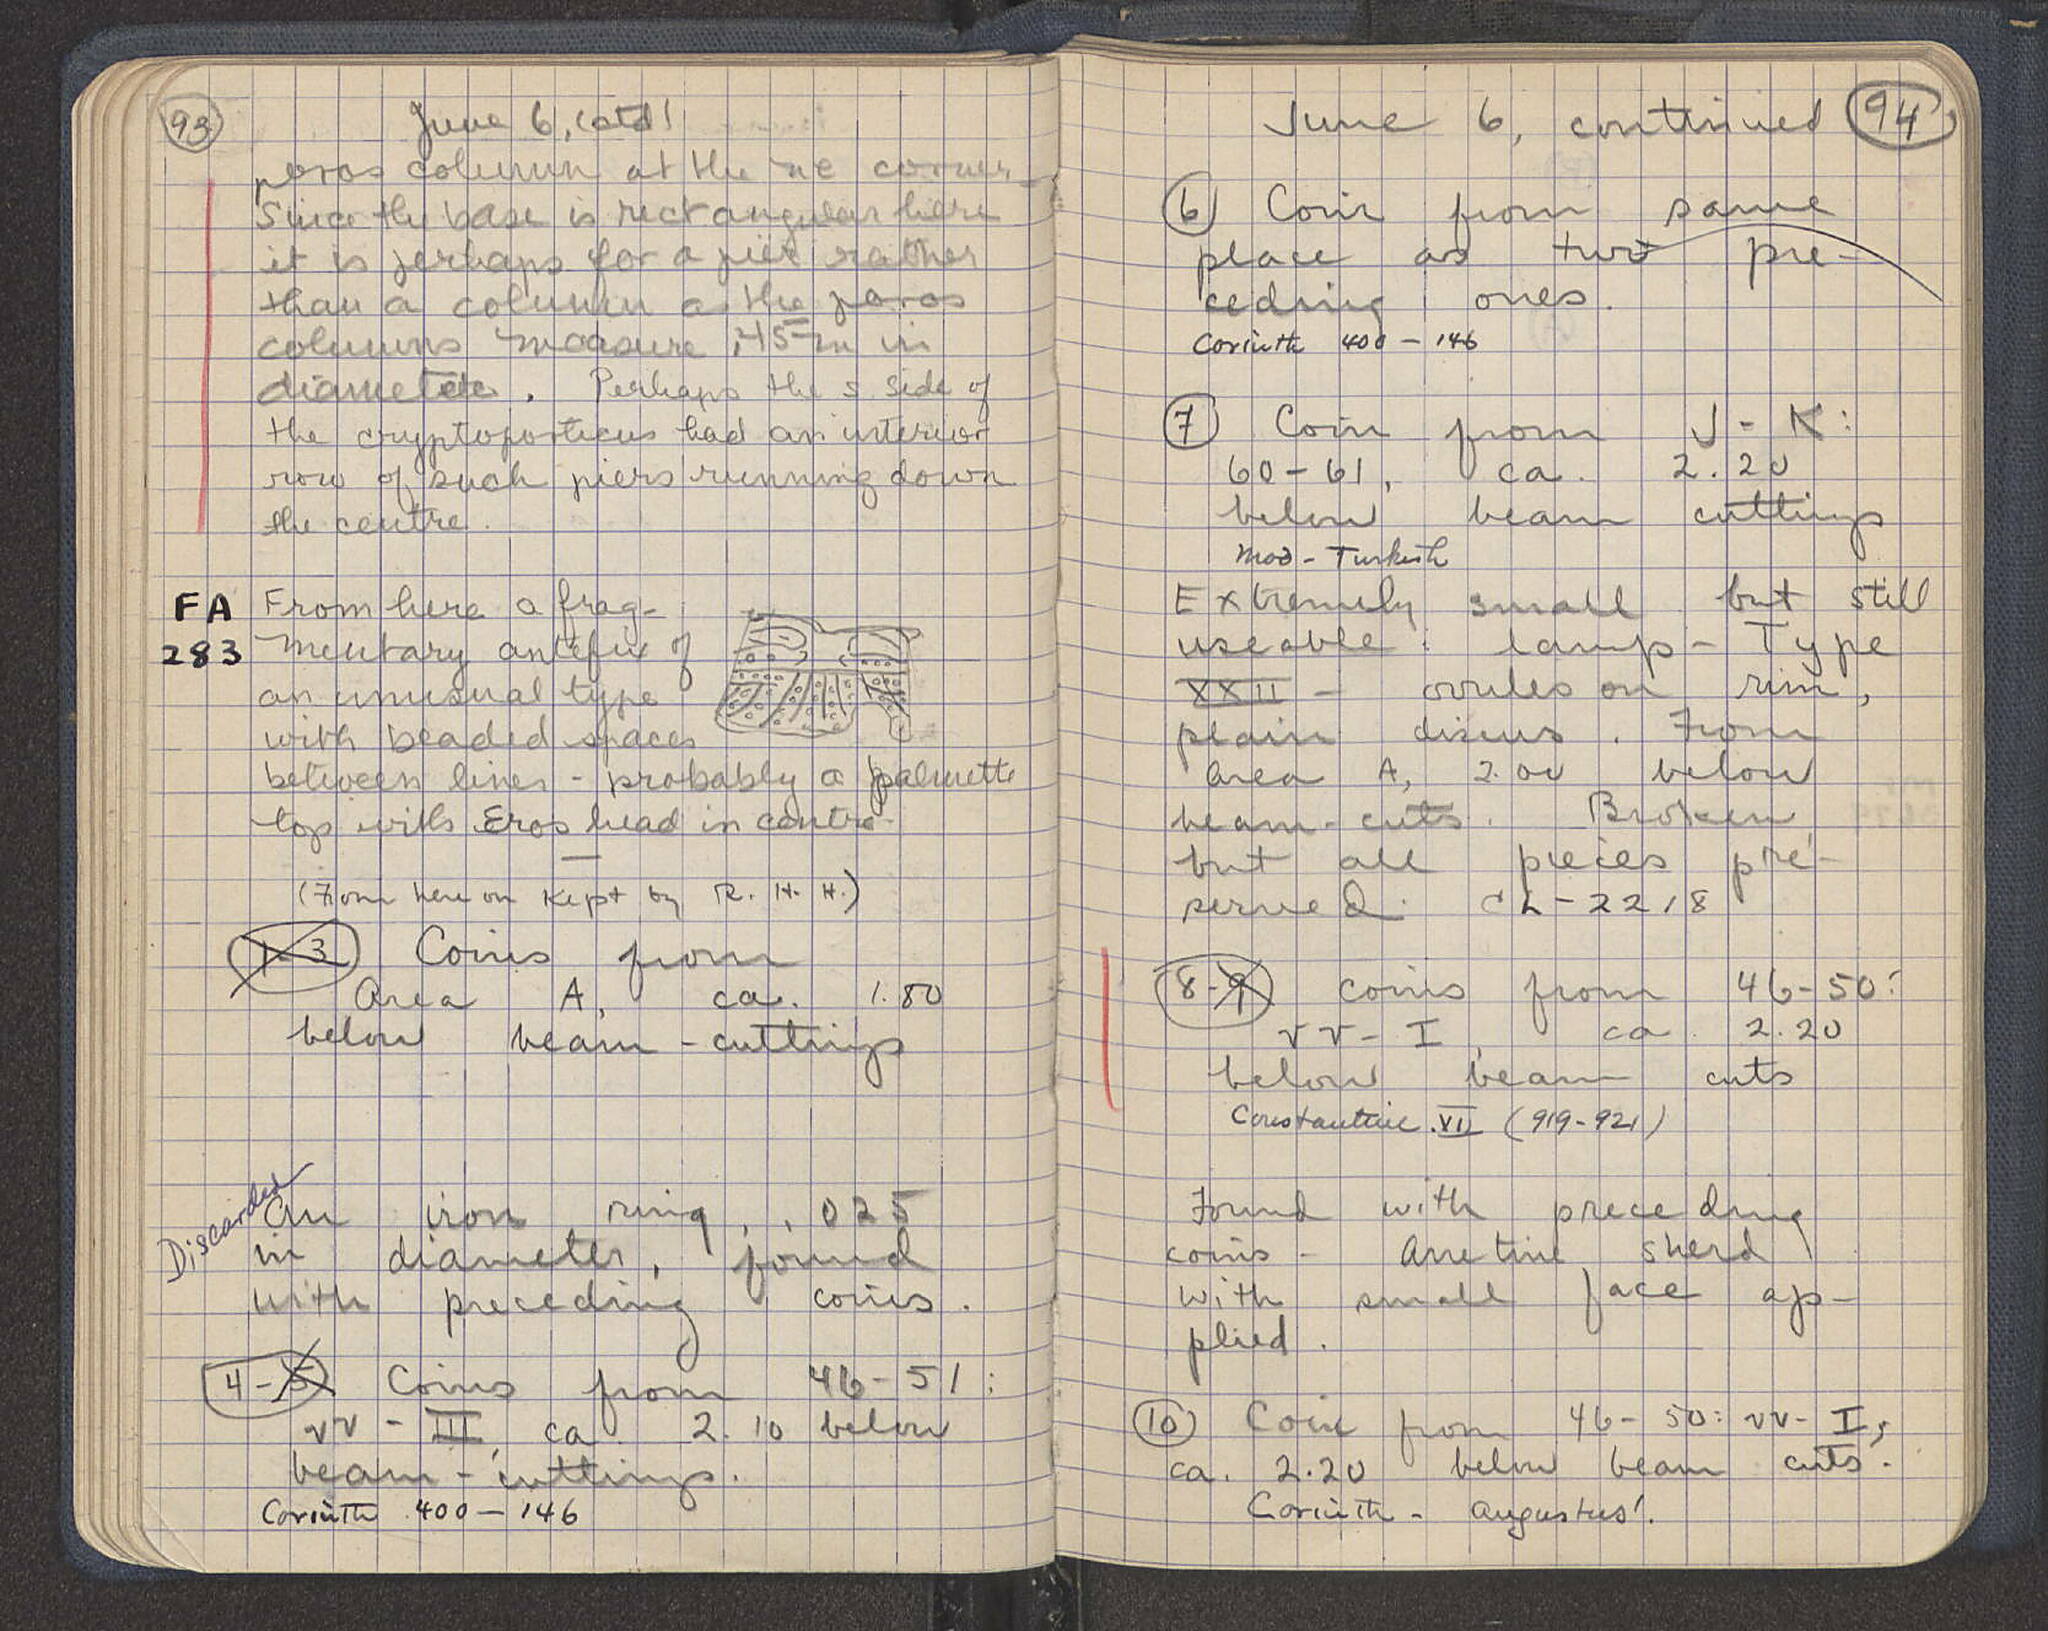 93
June 6, cotd!
poros column at the ne corner.
Since the base is rectangular here
it is perhaps for a pier rather
than a column as the poros
columns measure .45 m in
diameter. Perhaps the s side of
the cryptoporticus had an interior
row of such piers running down
the centre.
FA
283
From here a frag-
mentary antefix of
an unusual type
with beaded spaces
between lines - probably a palmette
top with Eros head in centre.
(From here on kept by R. H. H.)
1-3 Coins from
Area A, ca. 1.80
below beam-cuttings
Discarded
An iron ring, .025
in diameter, found
with preceding coins.
4-5 Coins from 46-51:
vv-III, ca. 2.10 below
beam-cuttings.
Corinth 400-146
June 6, continued
94
6 Coin from same
place as two pre-
ceding ones.
Corinth 400-146
7 Coin from J-K:
60-61, ca. 2.20
below beam cuttings
Mod-Turkish
Extremely small but still
useable lamp - Type
XXII - ovules on rim,
plain discus. From
Area A, 2.00 below
beam-cuts. Broken,
but all pieces pre-
served. CL-2218
8-9 Coins from 46-50:
vv-I, ca. 2.20
below beam cuts
Constantine VII (919-921)
Found with preceding
coins - Arretine sherd
with small face ap-
plied.
10 Coin from 46-50: vv-I,
ca. 2.20 below beam cuts.
Corinth - Augustus!